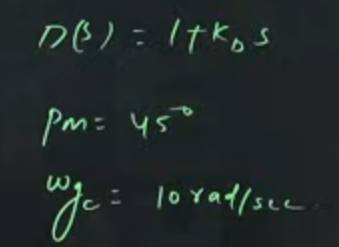 D(s) = 1+K_D s
PM = 45°
ω_gc = 10 rad/sec.